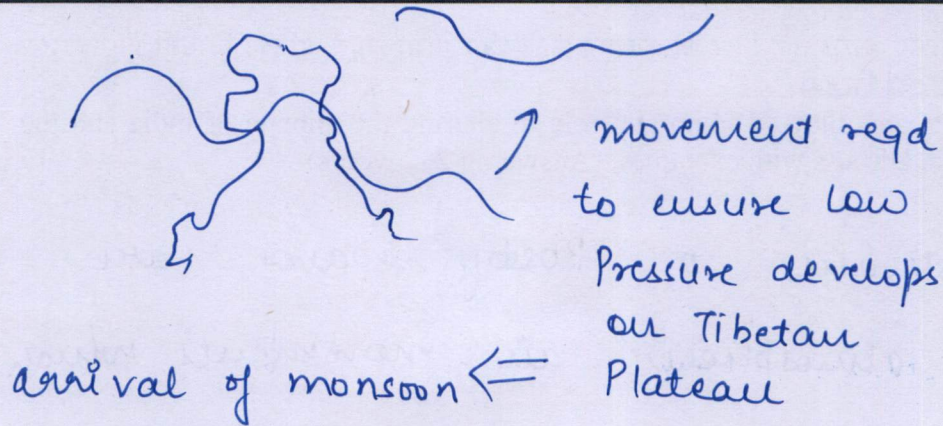 movement reqd
to ensure Low
Pressure develops
on Tibetan
Plateau
arrival of monsoon ⇐